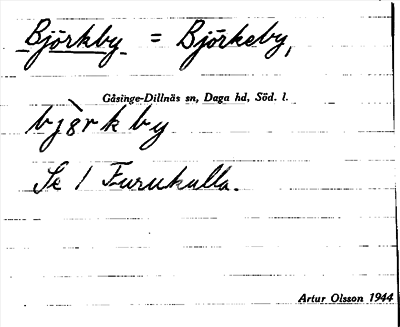 Björkby = Björkeby,
Gåsinge-Dillnäs sn, Daga hd, Söd. l.
bjö̀rkby
Se / Furukulla.
Artur Olsson 1944